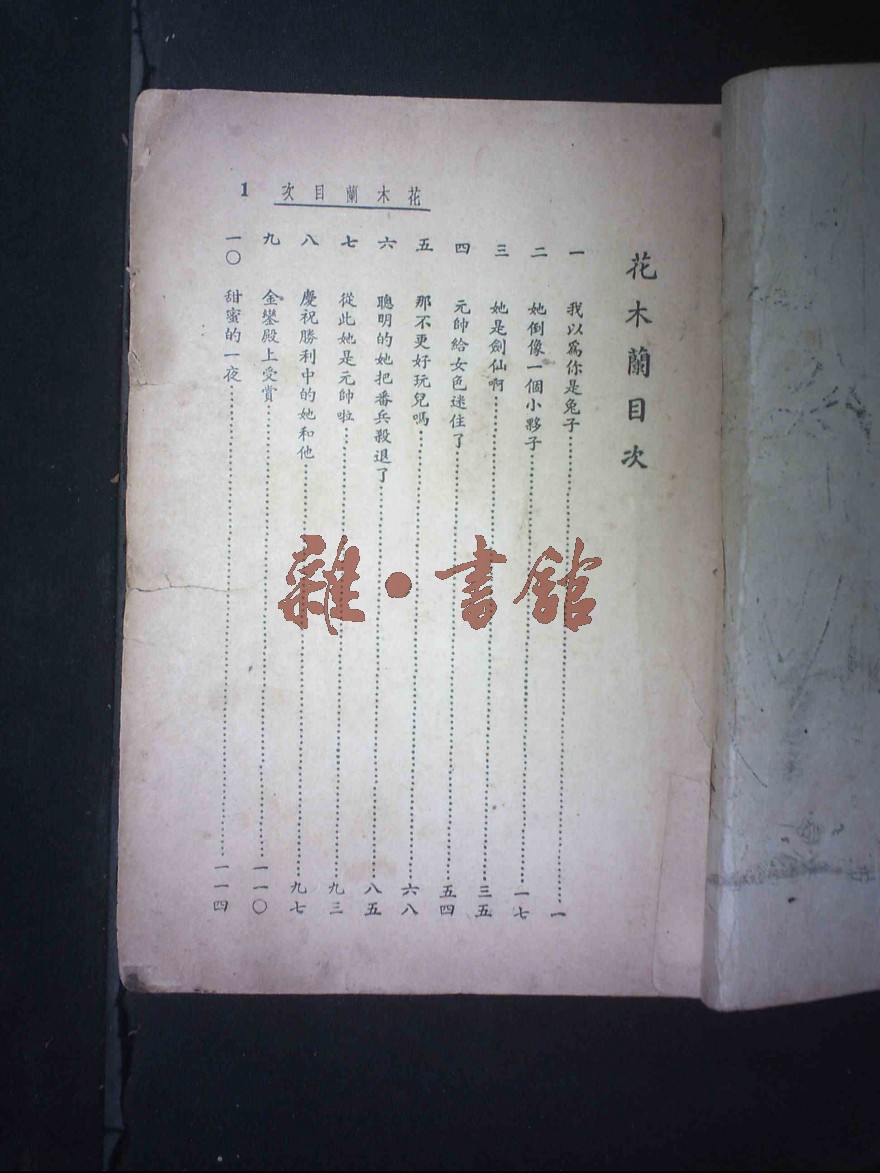 花木蘭目次
1
花木蘭目次
一 我以爲你是兔子……一
二 她倒像一個小夥子……一七
三 她是劍仙啊……三五
四 元帥給女色迷住了……五四
五 那不更好玩兒嗎……六八
六 聰明的她把番兵殺退了……八五
七 從此她是元帥啦……九三
八 慶祝勝利中的她和他……九七
九 金鑾殿上受賞……一一〇
一〇 甜蜜的一夜……一一四
雜·書館